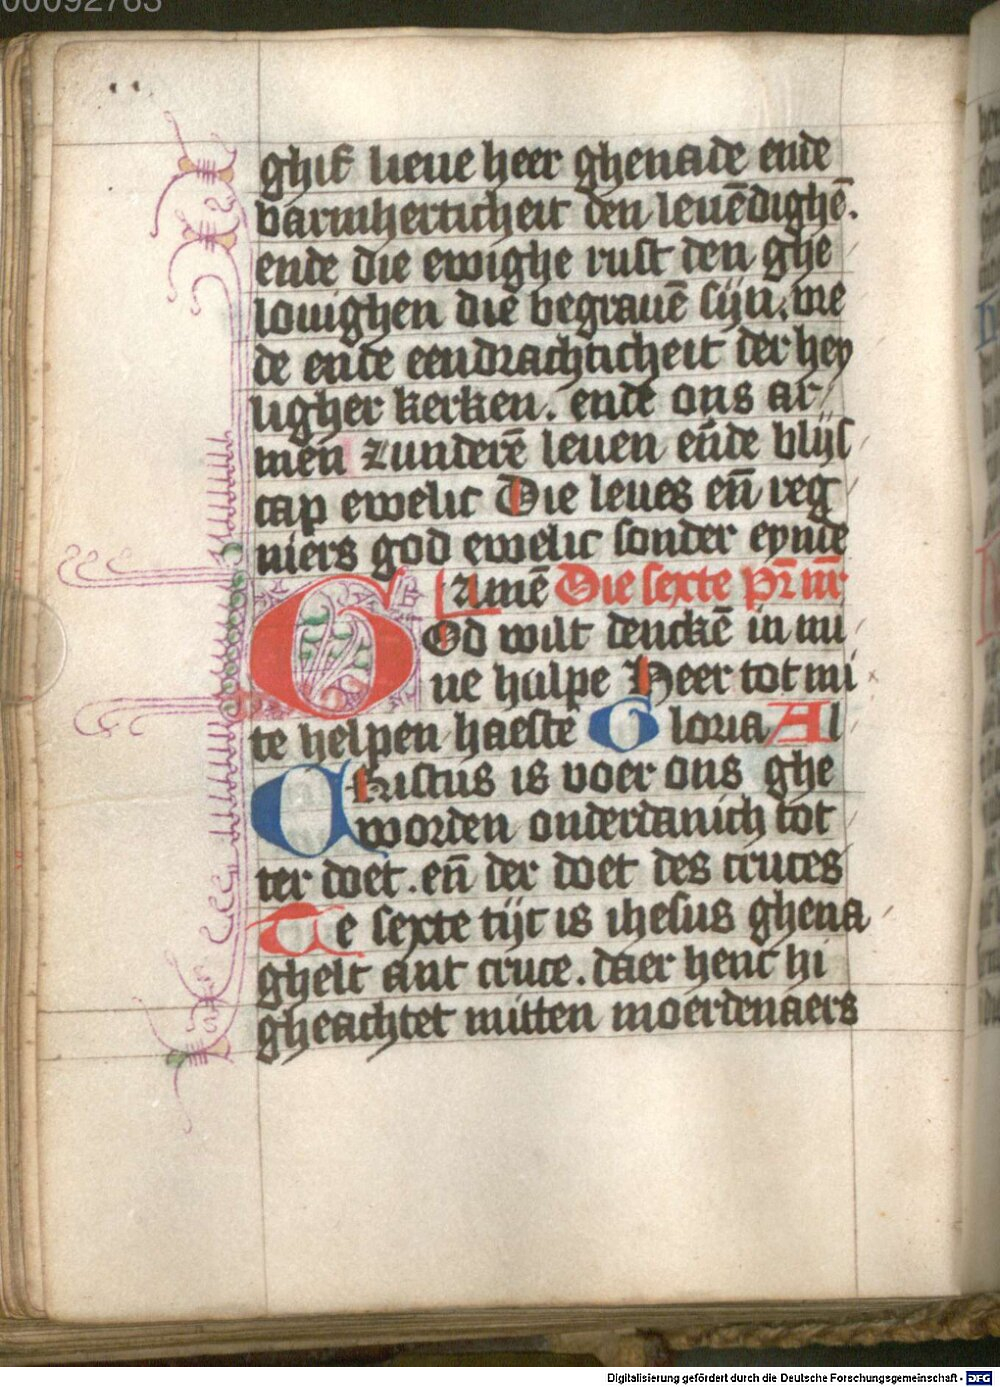 00092763
ghif lieue heer ghenade ende
barmherticheit den leuēdighē.
ende die ewighe rust den ghe
louighen die begrauē sijn. vre
de ende eendrachticheit der hey
ligher kerken. ende ons ar
men zunderē leuen ende blijs
cap ewelic Die leues eñ reg
niers god ewelic sonder eynde
Amē Die sexte
God wilt denckē in mi
ne hulpe Heer tot mi
te helpen haeste Gloria Al
Christus is voer ons ghe
worden onderdanich tot
ter doet. eñ der doet des cruces
Te sexte tijt is ihesus ghena
ghelt ant cruce. daer henc hi
gheachtet mitten moerdenaers
Digitalisierung gefördert durch die Deutsche Forschungsgemeinschaft - DFG